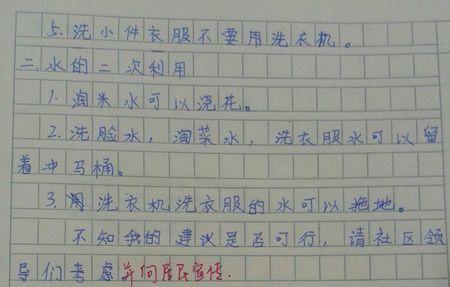 5.洗小件衣服不要用洗衣机。
二.水的二次利用
1.淘米水可以浇花。
2.洗脸水，淘菜水，洗衣服水可以留
着冲马桶。
3.用洗衣机洗衣服的水可以拖地。
不知我的建议是否可行，请社区领
导们考虑并向居民宣传.